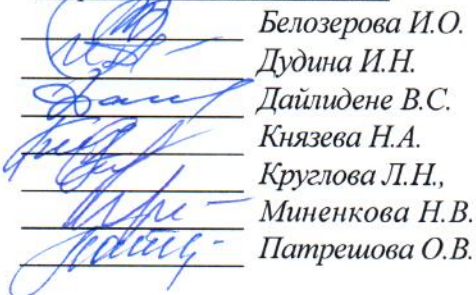 Белозерова И.О.
Дудина И.Н.
Дайлидене В.С.
Князева Н.А.
Круглова Л.Н.,
Миненкова Н.В.
Патрешова О.В.